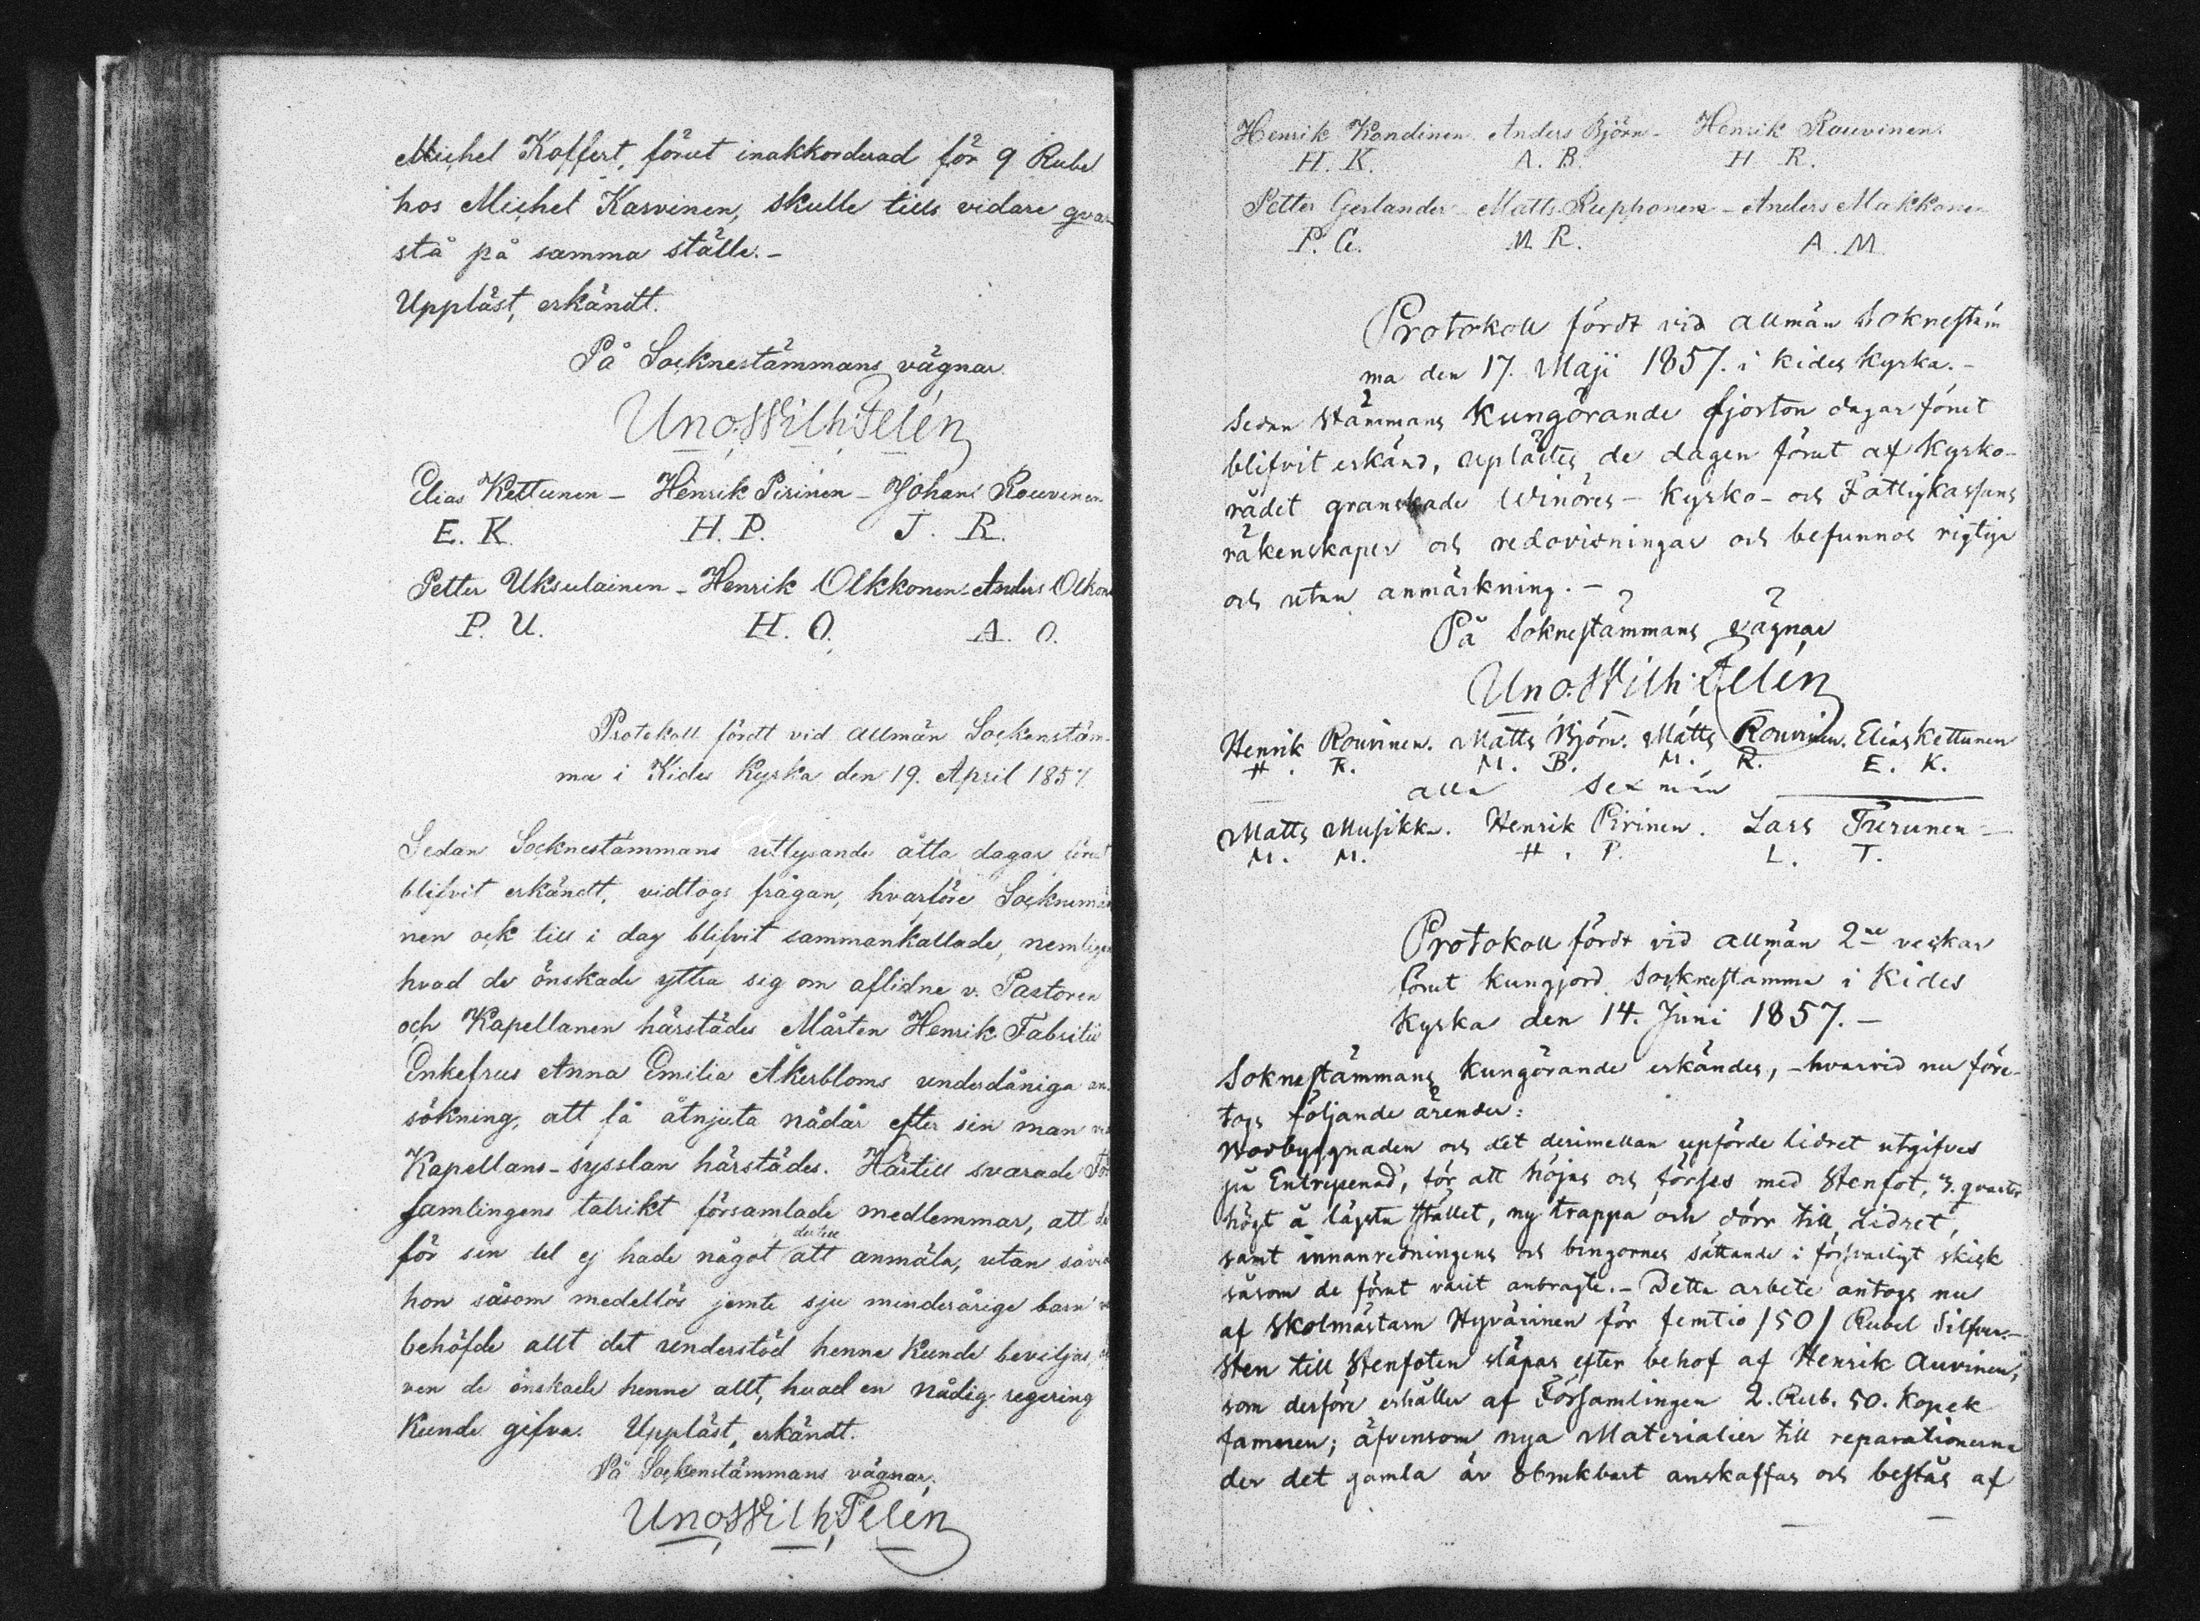 Michel Koffert, förut inakkorderad för 9 Rubel
hos Michel Karvinen, skulle tills vidare qvar
stå på samma ställe. -
Uppläst, erkändt.
På Socknestämmans vägnar
Uno Wilh: Telén
Elias Kettunen - Henrik Pirinen - Johan Rouvinen
E. K. H. P. J. R.
Petter Uksulainen - Henrik Olkkonen - Anders Olkon
P. U. H. O. A. O.
Protokoll fördt vid allmän Sockenstäm-
ma i Kides Kyrka den 19. April 1857
Sedan Socknestämmans utlysande åtta dagar förut
blifvit erkändt, vidtogs frågan, hvarföre Socknemän
nen ock till i dag blifvit sammankallade, nemligen
hvad de önskade yttra sig om aflidne v. Pastoren
och Kapellanen härstädes Mårten Henrik Fabritii
Enkefrus Anna Emilia Åkerbloms underdåniga an-
sökning, att få åtnjuta nådår efter sin man
Kapellans-sysslan härstädes. Härtill svarade För
samlingens talrikt församlade medlemmar, att de
för sin del ej hade något dertill att anmäla, utan
hon såsom medellös jemte sju minderårige barn
behöfde allt det understöd henne kunde beviljas,
ven de önskade henne allt, hvad en nådig regering
kunde gifva. Uppläst, erkändt.
På Sockenstämmans vägnar,
Uno Wilh: Telén
Henrik Kondinen Anders Björn - Henrik Rouvinen
H. K. A. B. H R.
Petter Gerlander - Matts Rupponen - Anders Makkonen
P. G. M R. A. M
Protokoll fördt vid allmän Soknestäm
ma den 17. Maji 1857. i Kides Kyrka. -
Sedan Stämmans Kungörande fjorton dagar förut
blifvit erkänd, uplästes de dagen förut af Kyrko-
rådet granskade Winöres- Kyrko- och Fattigkassans
räkenskaper och redovisningar och befunnos rigtiga
och utan anmärkning. -
På Soknestämmans vägnar
Uno Wilh: Telén
Henrik Rouvinen. Matts Björn. Matts Rouvinen. Elias Kettunen
H. R. M. B. M. R. E. K.
alla Sexmän
Matts Musikka. Henrik Pirinen. Lars Turunen -
M. M. H. P. L. T.
Protokoll fördt vid allmän 2ne veckor
förut kungjord Socknestämma i Kides
Kyrka den 14. Juni 1857. -
Soknestämmans Kungörande erkändes, - hvarvid nu före-
togs följande ärender:
byggnaden och det derimellan upförde Lidret utgifves
på Entreprenad, för att höjas och förses med Stenfot, 3. qvarter
högt å lägsta stället, ny trappa och dörr till Lidret,
samt innanredningens och bingornes sättande i försvarligt skick
såsom de förut varit anbragte. - Detta arbete antogs nu
af Skolmästarn Hyvärinen för femtio /50/ Rubel Silfver. -
Sten till Stenfoten släpas efter behof af Henrik Auvinen,
som derföre erhåller af Församlingen 2. Rub. 50. Kopek
famnen; äfvensom nya Materialier till reparationerna
der det gamla är obrukbart anskaffas och bestås af